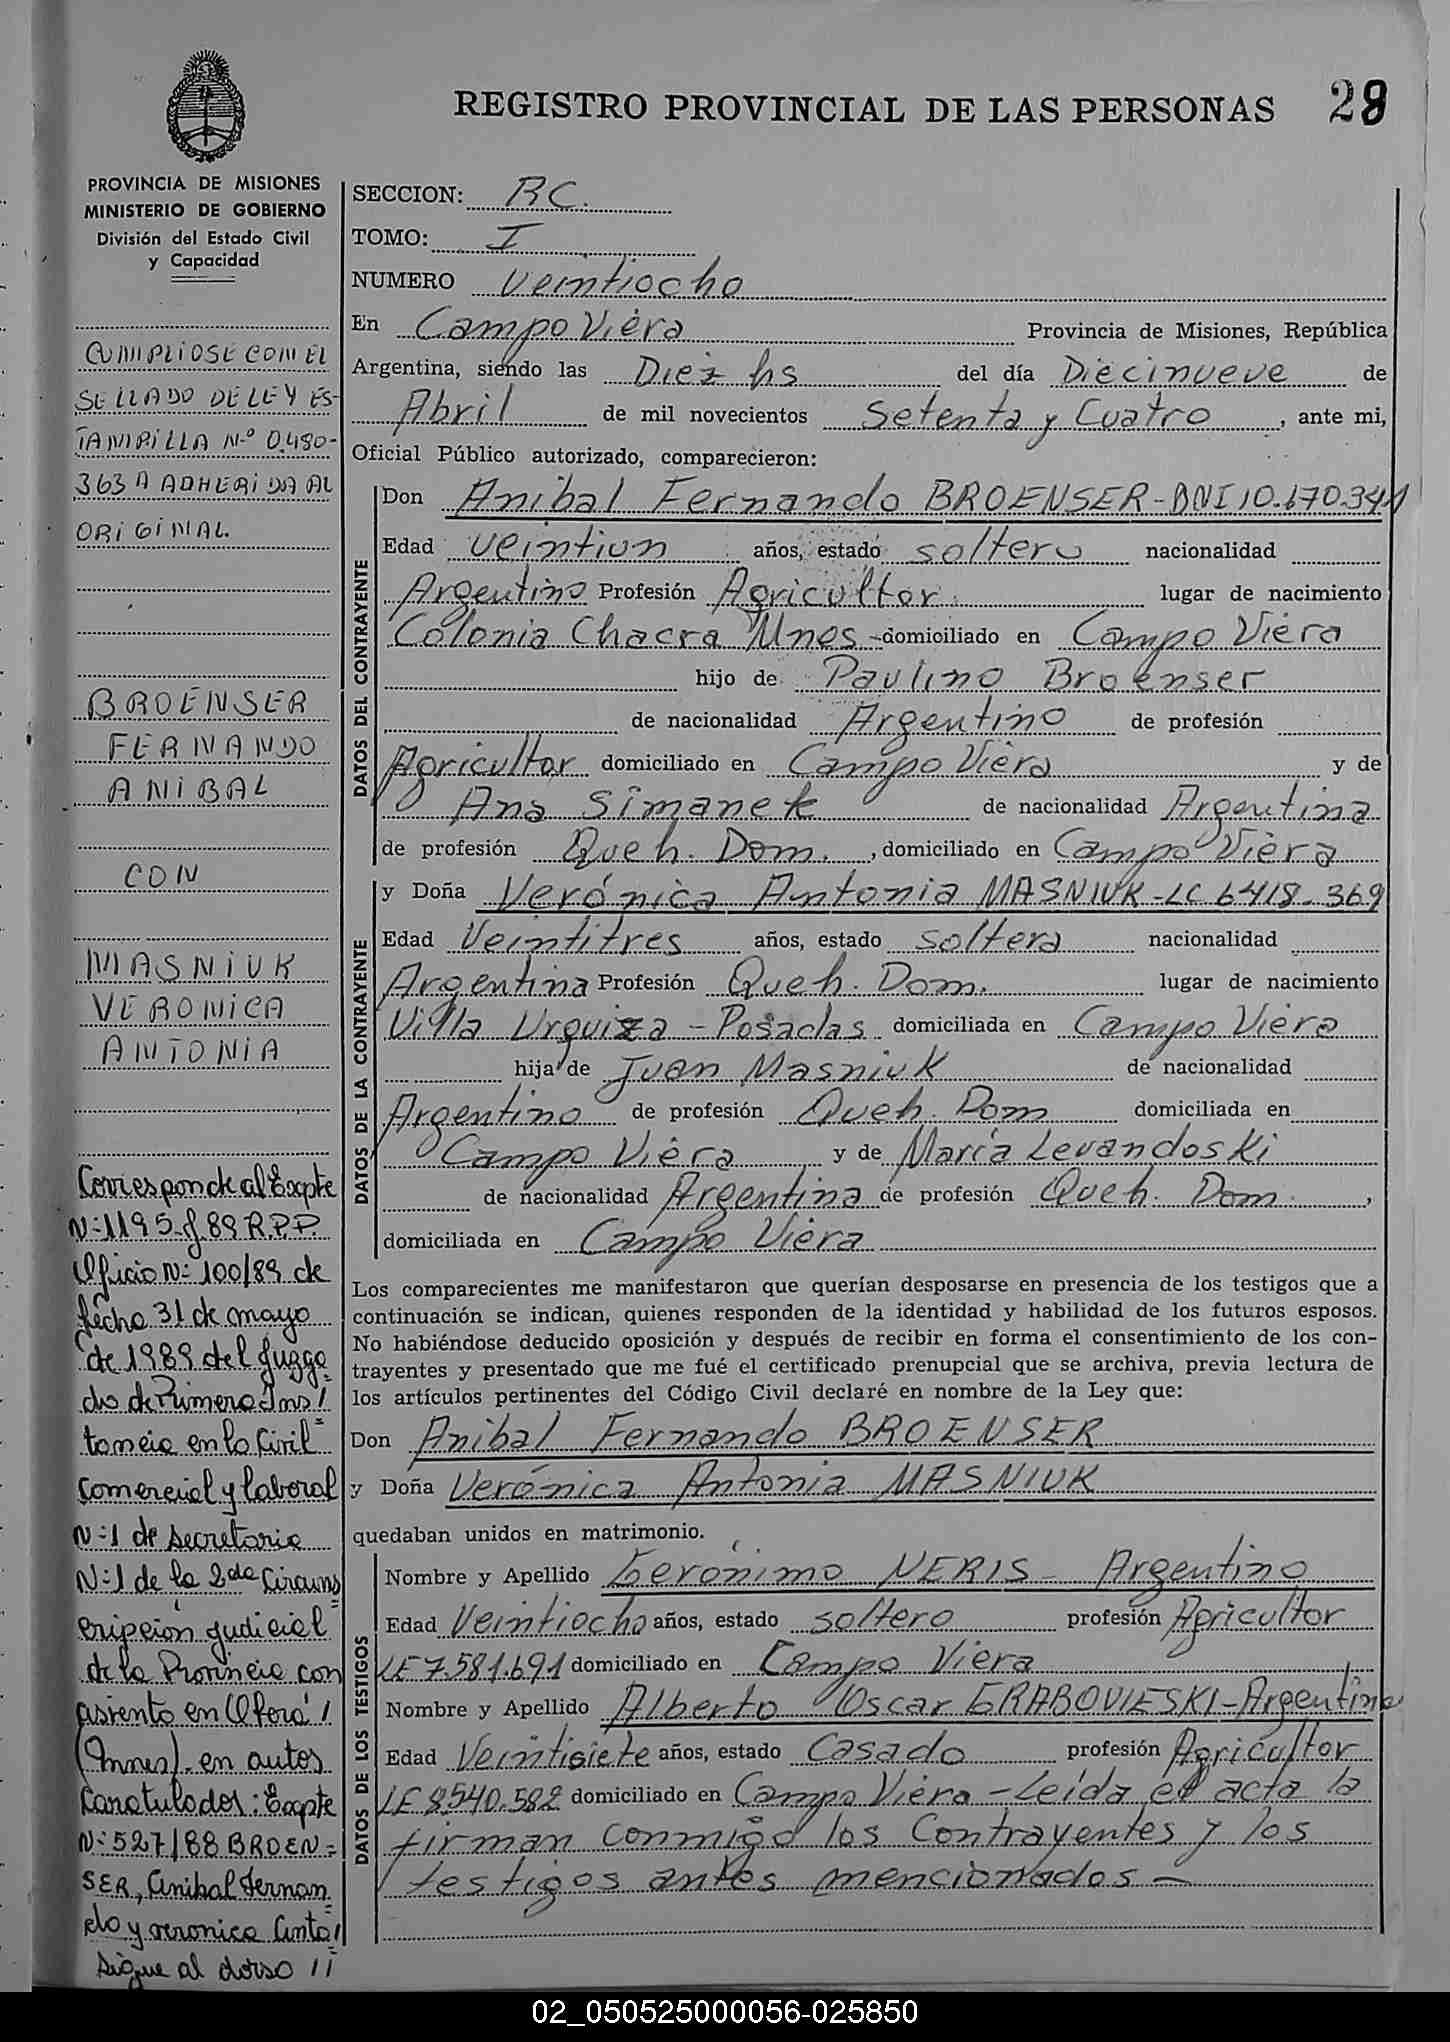 REGISTRO PROVINCIAL DE LAS PERSONAS
28
PROVINCIA DE MISIONES
MINISTERIO DE GOBIERNO
División del Estado Civil
y Capacidad
CUMPLIOSE CON EL
SELLADO DE LEY ES-
TAMPILLA N-º 0.480-
363 A ADHERIDA AL
ORIGINAL.
BROENSER
FERNANDO
ANIBAL
CON
MASNIUK
VERONICA
ANTONIA
Corresponde al Expte
N-º 1195-J-89 R.P.P.
Oficio N-º 100/89 de
fecha 31 de mayo
de 1989 del Juzga=
do de Primera Ins/
tancia en lo Civil=
Comercial y laboral
N-º 1 de secretaria
N-º 1 de la 2da Circuns=
cripción judicial
de la Provincia con
asiento en Oberá/
(Mnes). en autos
Caratulados: Expte
N-º 527/88 BROEN=
SER, Anibal Fernan=
do y veronica Anto/=
Sigue al dorso //
SECCION: RC.
TOMO: I
NUMERO Veintiocho
En Campo Viera Provincia de Misiones, República
Argentina, siendo las Diez hs del día Diecinueve de
Abril de mil novecientos Setenta y Cuatro, ante mi,
Oficial Público autorizado, comparecieron:
DATOS DEL CONTRAYENTE
Don Anibal Fernando BROENSER-DNI 10.170.341
Edad Veintiun años, estado soltero nacionalidad
Argentino Profesión Agricultor lugar de nacimiento
Colonia Chacra Mnes - domiciliado en Campo Viera
hijo de Paulino Broenser
de nacionalidad Argentino de profesión
Agricultor domiciliado en Campo Viera y de
Ana Simanek de nacionalidad Argentina
de profesión Queh. Dom., domiciliado en Campo Viera
DATOS DE LA CONTRAYENTE
y Doña Verónica Antonia MASNIUK-LC 6418.369
Edad Veintitres años, estado soltera nacionalidad
Argentina Profesión Queh. Dom. lugar de nacimiento
Villa Urquiza - Posadas domiciliada en Campo Viera
hija de Juan Masniuk de nacionalidad
Argentino de profesión Queh. Dom domiciliada en
Campo Viera y de María Levandoski
de nacionalidad Argentina de profesión Queh. Dom.,
domiciliada en Campo Viera
Los comparecientes me manifestaron que querían desposarse en presencia de los testigos que a
continuación se indican, quienes responden de la identidad y habilidad de los futuros esposos.
No habiéndose deducido oposición y después de recibir en forma el consentimiento de los con-
trayentes y presentado que me fué el certificado prenupcial que se archiva, previa lectura de
los artículos pertinentes del Código Civil declaré en nombre de la Ley que:
Don Anibal Fernando BROENSER
y Doña Verónica Antonia MASNIUK
quedaban unidos en matrimonio.
DATOS DE LOS TESTIGOS
Nombre y Apellido Gerónimo NERIS - Argentino
Edad Veintiocho años, estado soltero profesión Agricultor
LE 7.581.691 domiciliado en Campo Viera
Nombre y Apellido Alberto Oscar GRABOVIESKI-Argentino
Edad Veintisiete años, estado Casado profesión Agricultor
LE 8.540.582 domiciliado en Campo Viera - Leída el acta la
firman conmigo los Contrayentes y los
testigos antes mencionados -
02_050525000056-025850